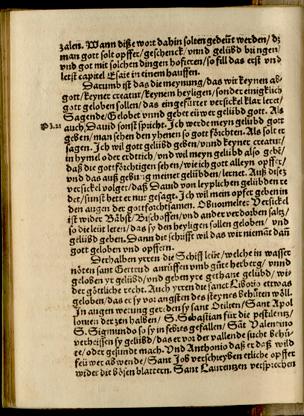 zalen. Wann diße wort dahin solten gedeüt werden / dz
man gott solt opffer / geschenck / vnnd gelübd bringen /
vnd got mit solchen dingen hofieren / so fill das erst vnd
letst capitel Esaie in einem hauffen.
Darumb ist das die meynung / das wir keynen ab-
gott / keyner creatur / keynem heyligen / sonder einiglich
gott geloben sollen / das eingefürter versickel klar leret /
Sagende / Gelobet vnnd gebet eüwer gelübd gott. Als
auch Dauid sonst spricht. Ich werde meyn gelübd gott
geben / man sehen den yhenen so gott förchten. Als solt er
sagen. Ich wil gott gelübd geben / vnnd keyner creatur /
in hymel oder erdtrich / vnd wil meyn gelübd also gebē /
daß die gottförchtigen sehen / wie ich gott alleyn opffer /
vnd das auß geburg meiner gelübden / lernet. Auß disez
versickel volget / daß Dauid von leyplichen gelübden re
det / sunst hett er nur gesagt. Ich wil mein opffer geben in
den augen der gotforchtsamen. Obnoumelter Versickel
ist wider Bäbst / Bischoffen / vnd ander verdorben saltz /
so die leüt leren / das sy den heyligen sollen geloben / vnd
gelübd geben. Dann die schrifft wil das wir niemāt dañ
gott geloben vnd opffern.
Derhalben yrren die Schiff leüt / welche in wasser
nöten sant Gertrud anrüffen vmb güt herberg / vnnd
geloben yr gelübd / vnd geben yre gethane gelübd / wi-
der göttliche recht. Auch yrren die sanct Liborio etwas
geloben / das er sy vor angsten des steynes behüten wöll.
In augen werung gerden sy sant Otilien / Sant Apol
lonien der zen halben / S. Sebastian für die pestilentz /
S. Sigmundo so sy in febres gefallen / Sāt Valentino
verheissen sy gelübd / das er vor der vallende sucht behü-
te / oder gesundt mach. Vnd Anthonio daß er daß wild
feüwer abwende / Sant Job verschreyben etliche opffer
wider die bösen blatteren. Sant Laurentzen versprechen